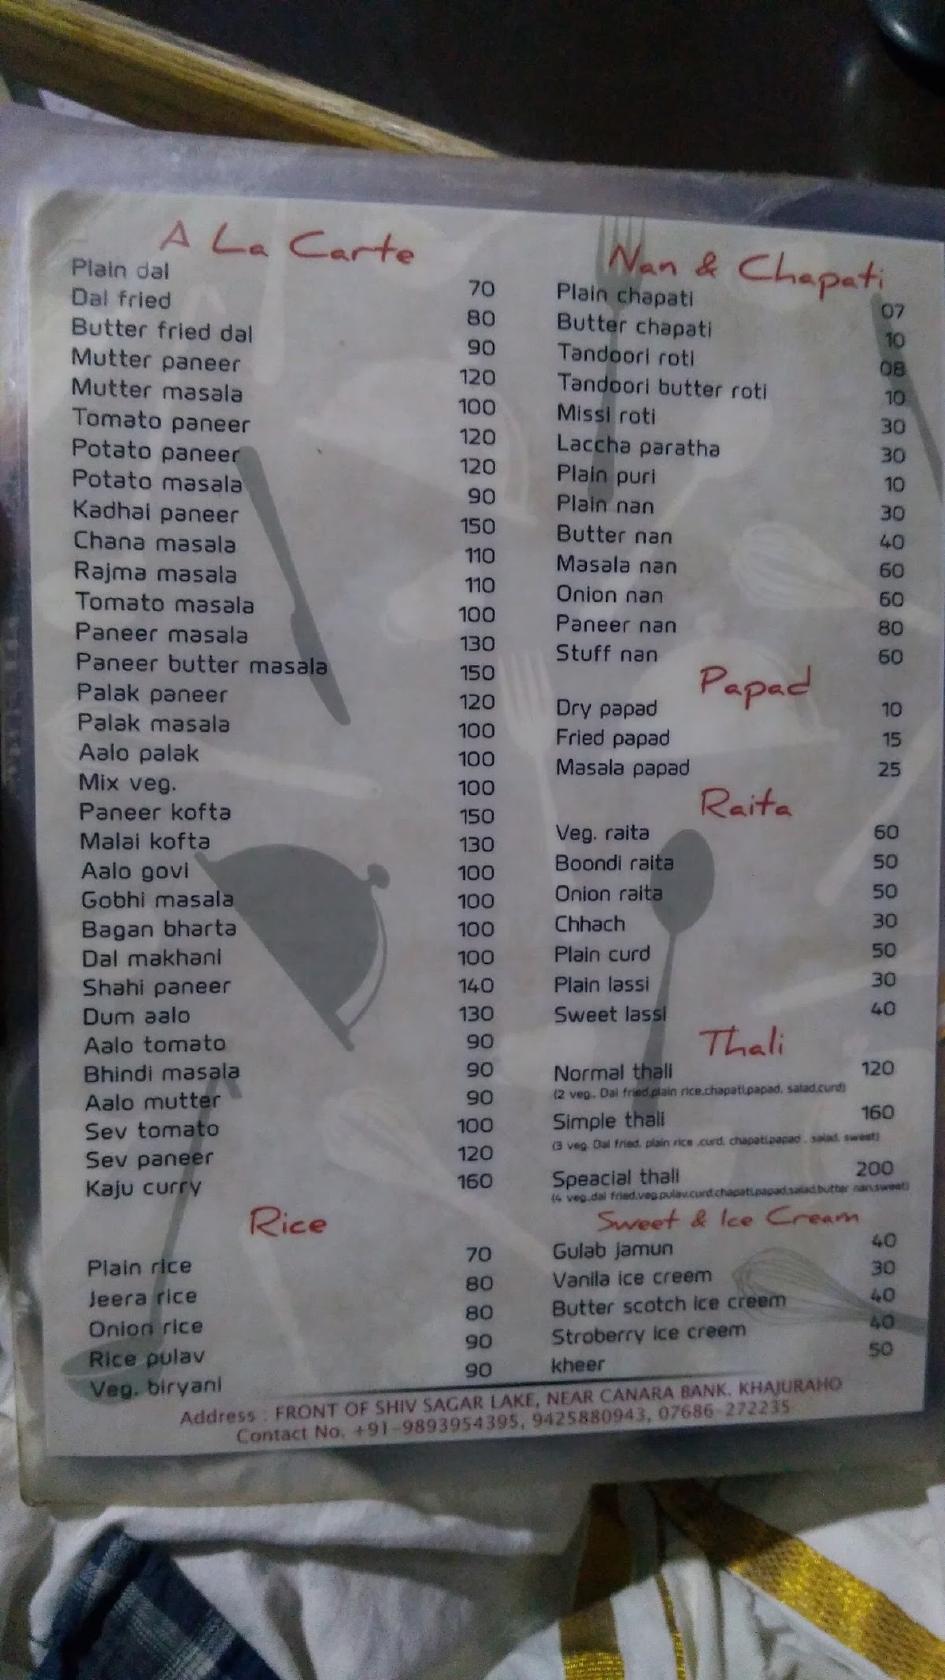 A La Carte
Plain dal 70
Dal fried 80
Butter fried dal 90
Mutter paneer 120
Mutter masala 100
Tomato paneer 120
Potato paneer 120
Potato masala 90
Kadhai paneer 150
Chana masala 110
Rajma masala 110
Tomato masala 100
Paneer masala 130
Paneer butter masala 150
Palak paneer 120
Palak masala 100
Aalo palak 100
Mix veg. 100
Paneer kofta 150
Malai kofta 130
Aalo govi 100
Gobhi masala 100
Bagan bharta 100
Dal makhani 100
Shahi paneer 140
Dum aalo 130
Aalo tomato 90
Bhindi masala 90
Aalo mutter 90
Sev tomato 100
Sev paneer 120
Kaju curry 160
Rice
Plain rice 70
Jeera rice 80
Onion rice 80
Rice pulav 90
Veg. biryani 90
Nan & Chapati
Plain chapati 07
Butter chapati 10
Tandoori roti 08
Tandoori butter roti 10
Missi roti 30
Laccha paratha 30
Plain puri 10
Plain nan 30
Butter nan 40
Masala nan 60
Onion nan 60
Paneer nan 80
Stuff nan 60
Papad
Dry papad 10
Fried papad 15
Masala papad 25
Raita
Veg. raita 60
Boondi raita 50
Onion raita 50
Chhach 30
Plain curd 50
Plain lassi 30
Sweet lassi 40
Thali
Normal thali 120
(2 veg.. Dal fried,plain rice,chapati,papad, salad,curd)
Simple thali 160
(3 veg. Dal fried, plain rice ,curd, chapati,papad , salad, sweet)
Speacial thali 200
(4 veg.,dal fried,veg.pulav,curd,chapati,papad,salad,butter nan,sweet)
Sweet & Ice Cream
Gulab jamun 40
Vanila ice creem 30
Butter scotch ice creem 40
Stroberry ice creem 40
kheer 50
Address : FRONT OF SHIV SAGAR LAKE, NEAR CANARA BANK, KHAJURAHO
Contact No. +91-9893954395, 9425880943, 07686-272235